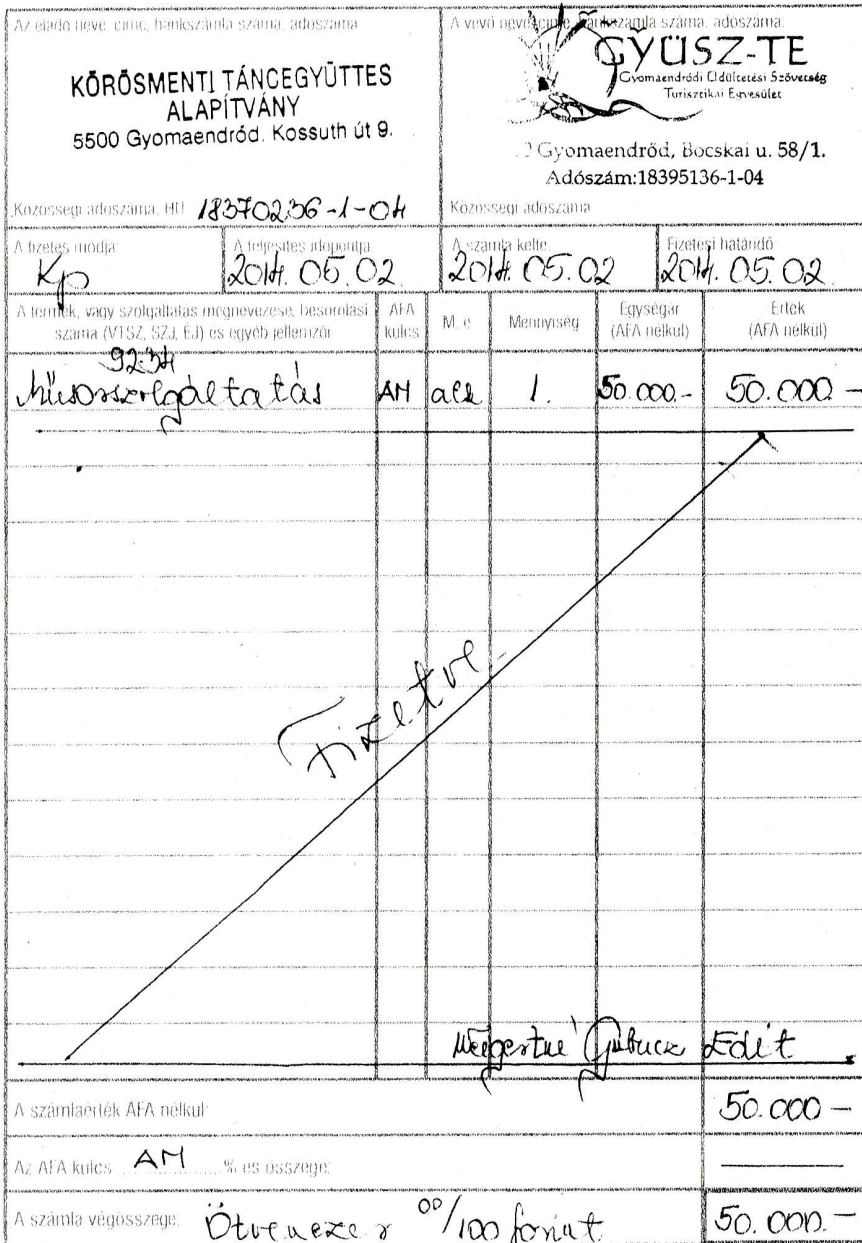 Az eladó neve, címe, bankszámla száma, adószáma
KÖRÖSMENTI TÁNCEGYÜTTES
ALAPÍTVÁNY
5500 Gyomaendrőd. Kossuth út 9.
Közösségi adószáma: HU 18370236-1-04
A vevő neve, címe, bankszámla száma, adószáma:
GYÜSZ-TE
Gyomaendrődi Üdültetési Szövetség
Turisztikai Egyesület
Gyomaendrőd, Bocskai u. 58/1.
Adószám:18395136-1-04
Közösségi adószáma
A fizetés módja: A teljesítés időpontja A számla kelte: Fizetési határidő
Kp 2014. 05. 02. 2014. 05. 02 2014. 05. 02
A termék, vagy szolgáltatás megnevezése, besorolási száma (VTSZ, SZJ, ÉJ) és egyéb jellemzői ÁFA kulcs M. e. Mennyiség Egységár (ÁFA nélkül) Érték (ÁFA nélkül)
9234
Műsorszolgáltatás AM alk 1. 50.000.- 50.000.-
Fizetve
Edit
A számlaérték ÁFA nélkül: 50.000 -
Az ÁFA kulcs AM % és összege:
A számla végösszege: Ötvenezer 00/100 forint 50.000.-